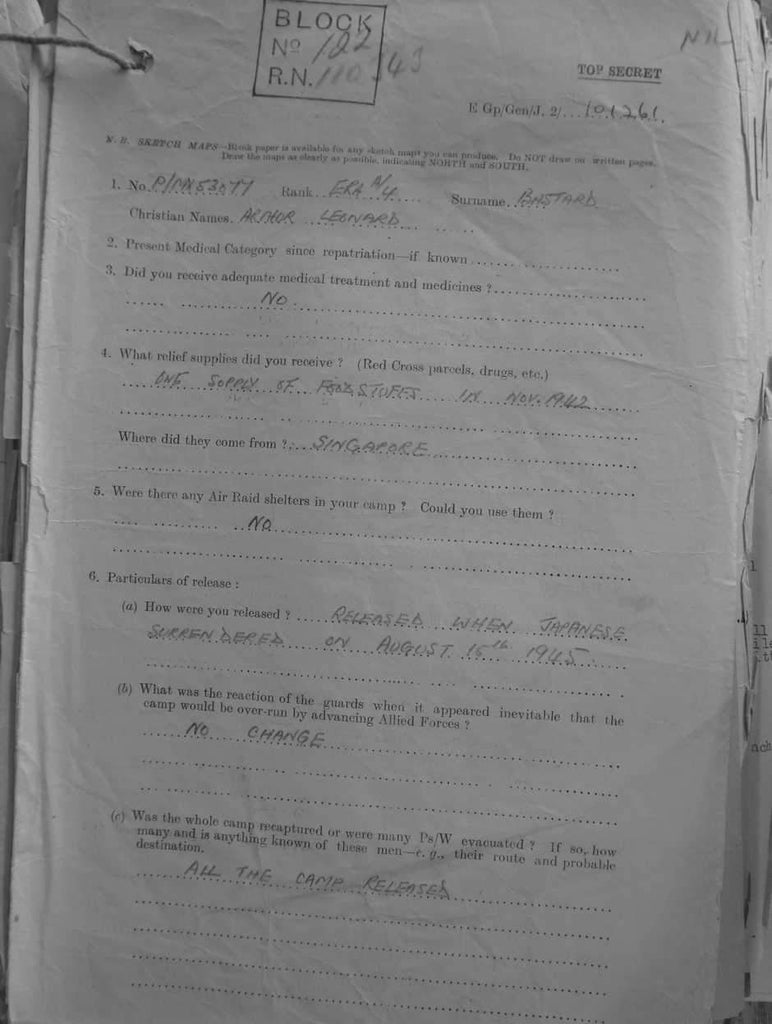 BLOCK
No 122
R.N. 110343
NIL
TOP SECRET
E Gp/Gen/J. 2/...101261.
N. B. SKETCH MAPS—Blank paper is available for any sketch maps you can produce. Do NOT draw on written pages.
Draw the maps as clearly as possible, indicating NORTH and SOUTH.
1. No. P/MX53077 Rank ERA 4/4 Surname. BASTARD
Christian Names. ARTHUR LEONARD
2. Present Medical Category since repatriation—if known
3. Did you receive adequate medical treatment and medicines ?
NO.
4. What relief supplies did you receive ? (Red Cross parcels, drugs, etc.)
ONE SUPPLY OF FOODSTUFFS IN NOV. 1942
Where did they come from ? SINGAPORE
5. Were there any Air Raid shelters in your camp ? Could you use them ?
NO
6. Particulars of release :
(a) How were you released ? RELEASED WHEN JAPANESE
SURRENDERED ON AUGUST 15th 1945.
(b) What was the reaction of the guards when it appeared inevitable that the
camp would be over-run by advancing Allied Forces ?
NO CHANGE
(c) Was the whole camp recaptured or were many Ps/W evacuated ? If so, how
many and is anything known of these men—e. g., their route and probable
destination.
ALL THE CAMP RELEASED